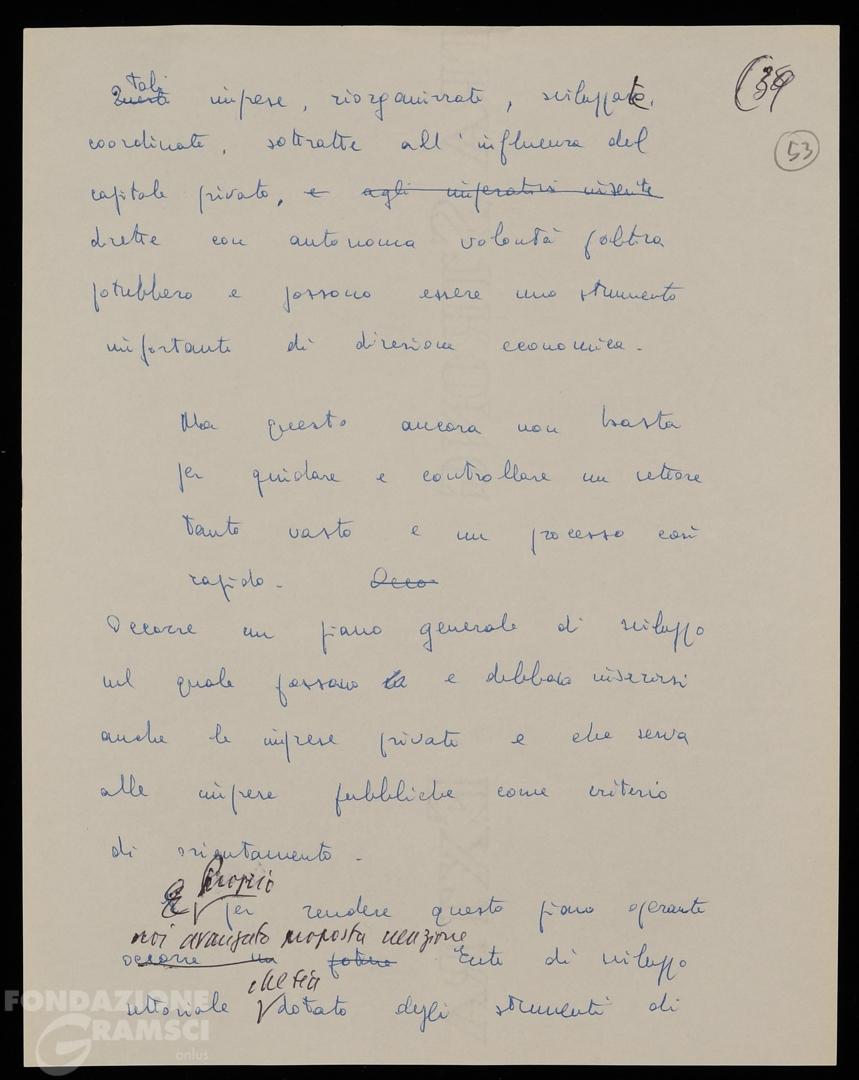 (39
53
tali
Queste imprese, riorganizzate, sviluppate,
coordinate, sottratte all'influenza del
capitale privato, e agli imperativi
dirette con autonoma volontà politica
potrebbero e possono essere uno strumento
importante di direzione economica.
Ma questo ancora non basta
per guidare e controllare un settore
tanto vasto e un processo così
rapido. Occo
Occorre un piano generale di sviluppo
nel quale possano e debbano inserirsi
anche le imprese private e che serva
alle imprese pubbliche come criterio
di orientamento.
Proprio
E per rendere questo piano operante
noi avanzato proposta
occorre un Ente di sviluppo
che sia
settoriale dotato degli strumenti di
FONDAZIONE
GRAMSCI
onlus